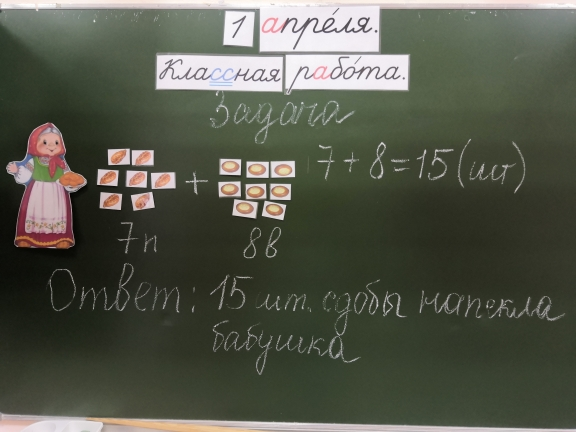 1 апре́ля.
Классная рабо́та.
Задача
+
7 + 8 = 15 (шт)
7п 8в
Ответ: 15 шт. сдобы напекла
бабушка